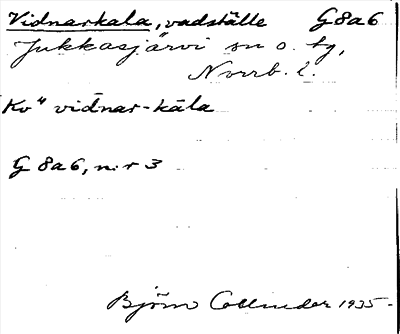 Vidnarkala, vadställe G8a6
Jukkasjärvi sn o. tg,
Norrb. l.
Kv" vidnar-kāla
G 8a6, n:r 3
Björn Collinder 1935-